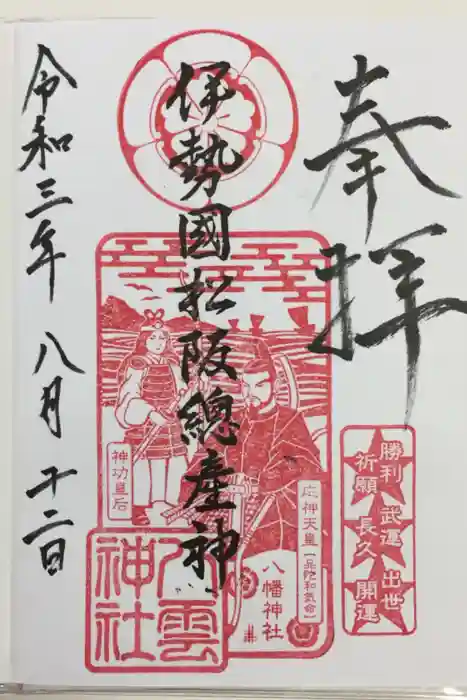 奉拝
伊勢國松阪總産神
令和三年八月十二日
神功皇后
応神天皇【品陀和氣命】
八幡神社
八雲神社
勝利
祈願
武運
長久
出世
開運